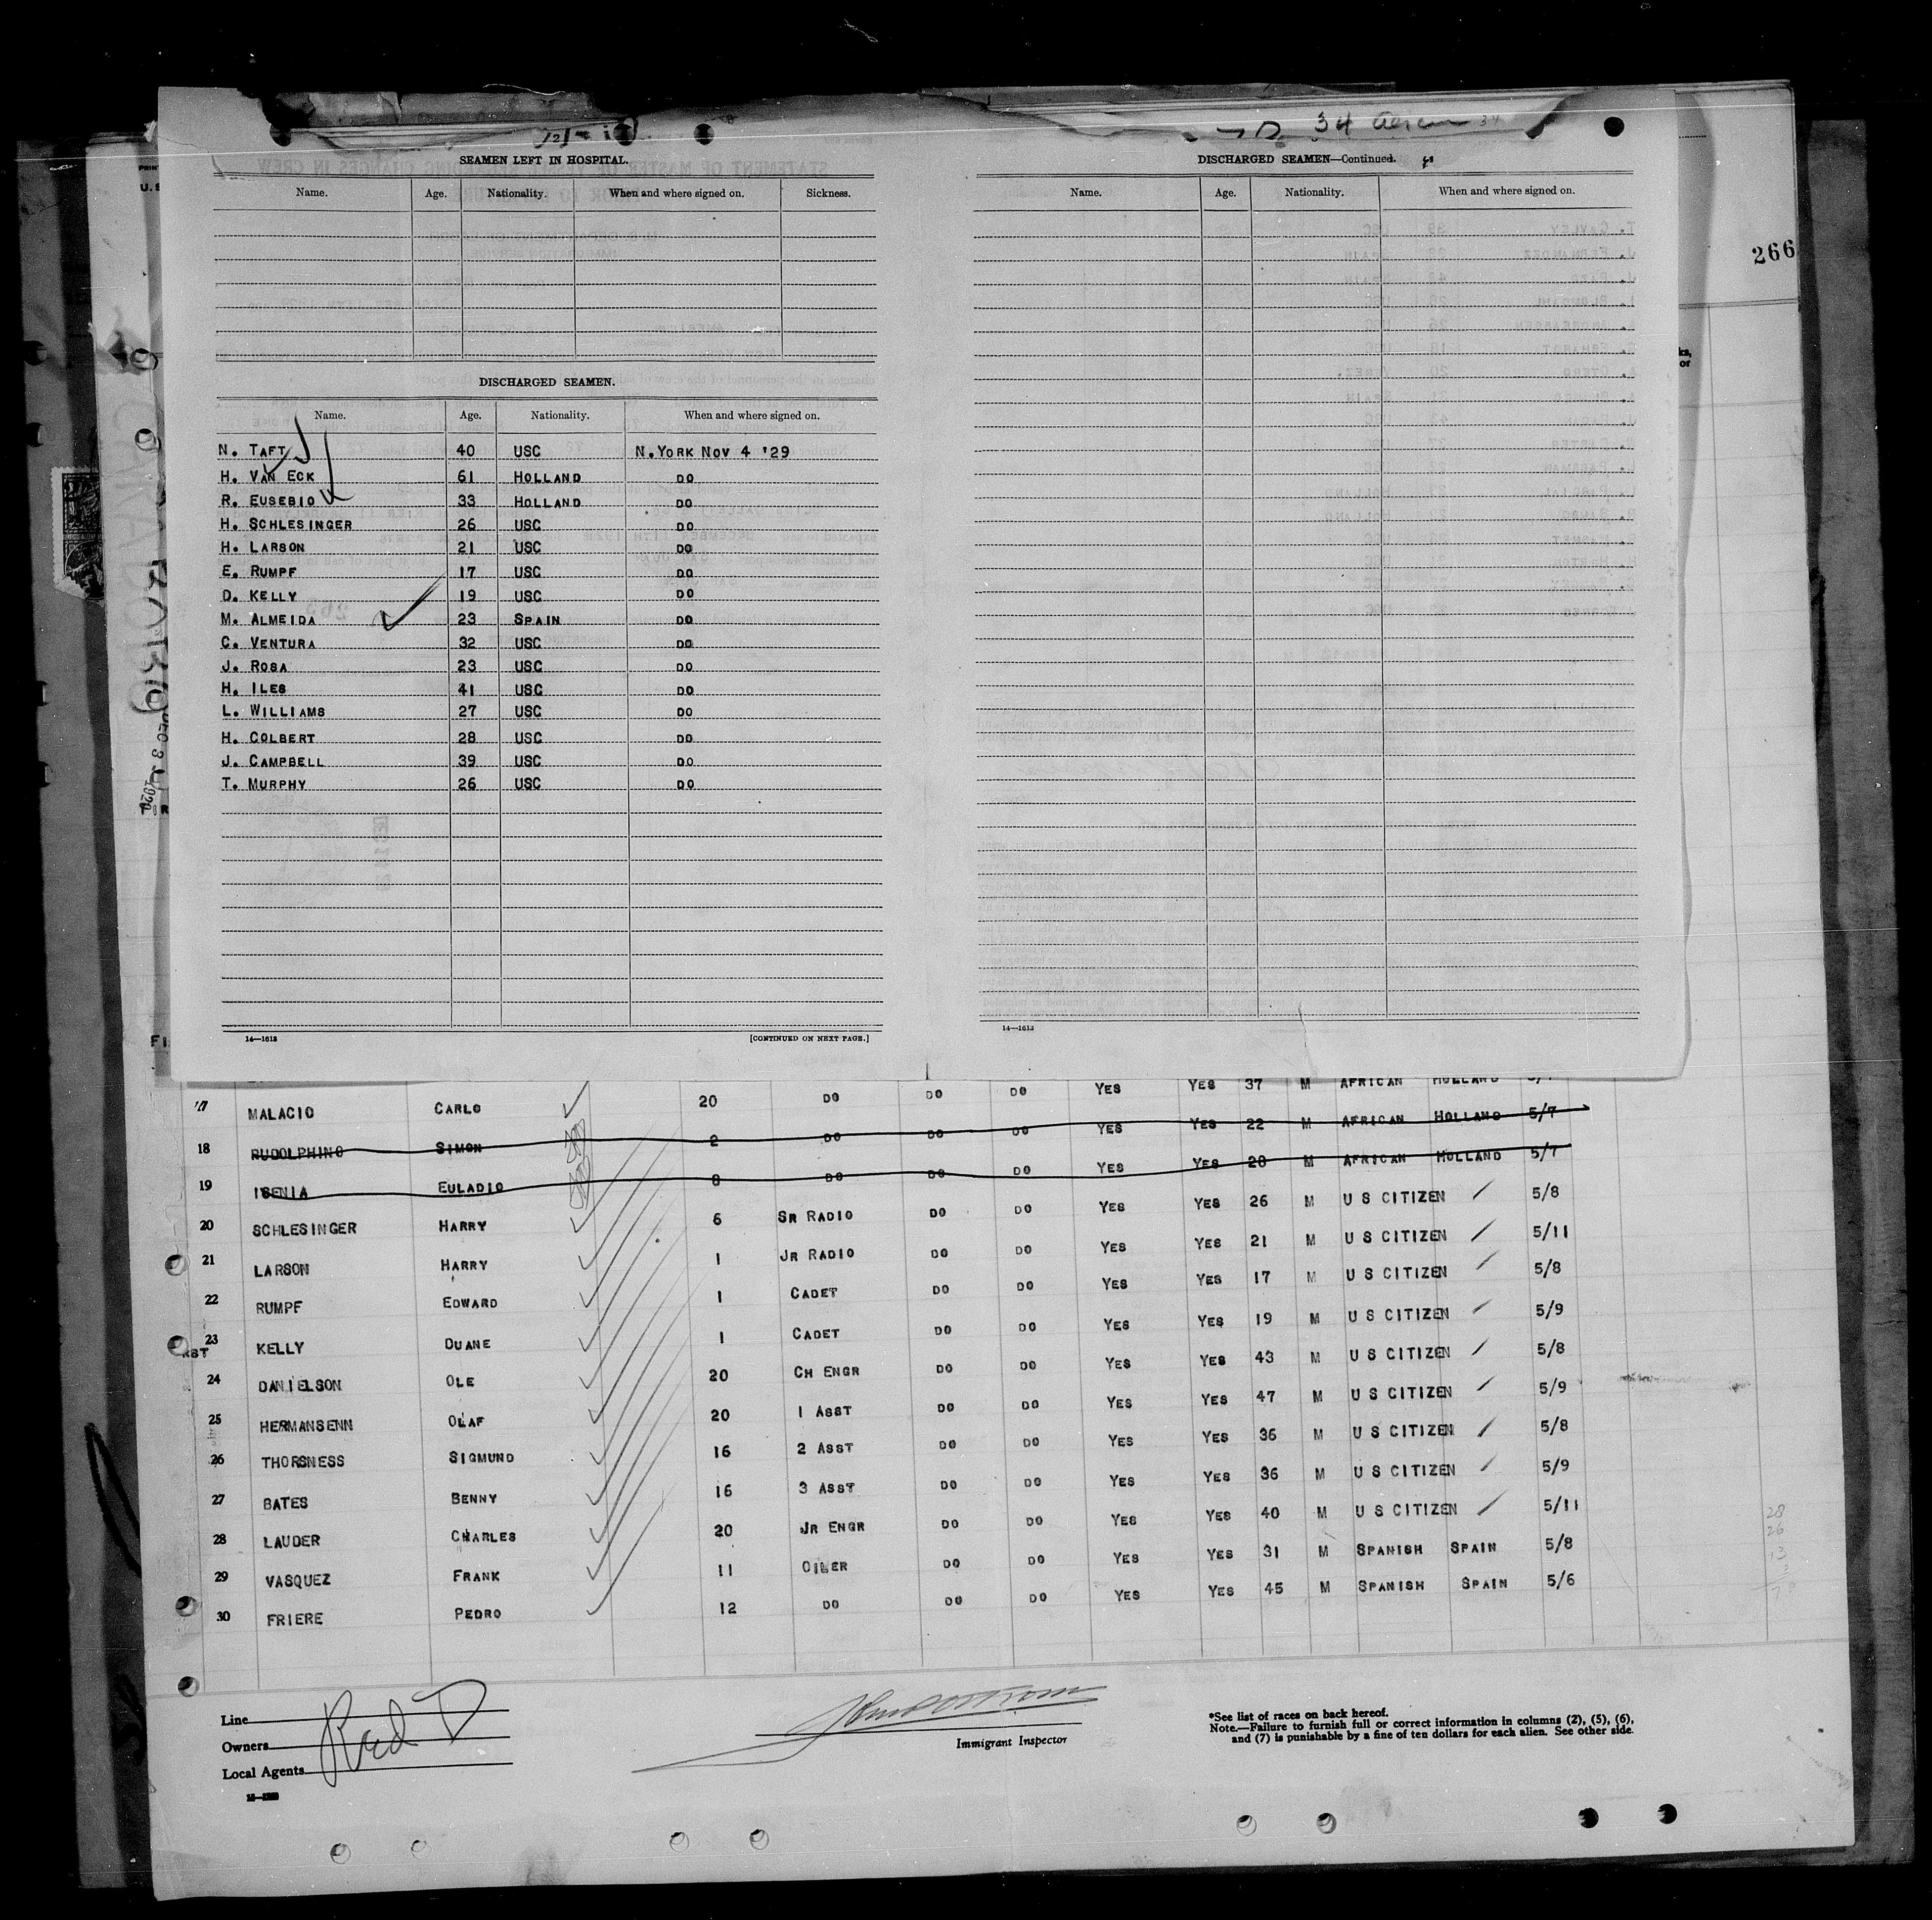 34
SEAMEN LEFT IN HOSPITAL.
Name. Age. Nationality. When and where signed on. Sickness.
DISCHARGED SEAMEN.
Name. Age. Nationality. When and where signed on.
N. TAFT 40 USC N.YORK NOV 4 '29
H. VAN ECK 61 HOLLAND DO
R. EUSEBIO 33 HOLLAND DO
H. SCHLESINGER 26 USC DO
H. LARSON 21 USC DO
E. RUMPF 17 USC DO
D. KELLY 19 USC DO
M. ALMEIDA 23 SPAIN DO
C. VENTURA 32 USC DO
J. ROSA 23 USC DO
H. ILES 41 USC DO
L. WILLIAMS 27 USC DO
H. COLBERT 28 USC DO
J. CAMPBELL 39 USC DO
T. MURPHY 26 USC DO
14—1613 [CONTINUED ON NEXT PAGE.]
DISCHARGED SEAMEN—Continued.
Name. Age. Nationality. When and where signed on.
14—1613
266
DO DO DO YES YES 37 M AFRICAN HOLLAND
17 MALACIO CARLO 20 DO DO DO YES YES 22 M AFRICAN HOLLAND 5/7
18 RUDOLPHINO SIMON 2 DO DO DO YES YES 28 M AFRICAN HOLLAND 5/7
19 ISENIA EULADIO 8 DO DO DO YES YES 26 M U S CITIZEN 5/8
20 SCHLESINGER HARRY 6 SR RADIO DO DO YES YES 21 M U S CITIZEN 5/11
21 LARSON HARRY 1 JR RADIO DO DO YES YES 17 M U S CITIZEN 5/8
22 RUMPF EDWARD 1 CADET DO DO YES YES 19 M U S CITIZEN 5/9
23 KELLY DUANE 1 CADET DO DO YES YES 43 M U S CITIZEN 5/8
24 DANIELSON OLE 20 CH ENGR DO DO YES YES 47 M U S CITIZEN 5/9
25 HERMANSENN OLAF 20 1 ASST DO DO YES YES 36 M U S CITIZEN 5/8
26 THORSNESS SIGMUND 16 2 ASST DO DO YES YES 36 M U S CITIZEN 5/9
27 BATES BENNY 16 3 ASST DO DO YES YES 40 M U S CITIZEN 5/11
28 LAUDER CHARLES 20 JR ENGR DO DO YES YES 31 M SPANISH SPAIN 5/8
29 VASQUEZ FRANK 11 OILER DO DO YES YES 45 M SPANISH SPAIN 5/6
30 FRIERE PEDRO 12 DO DO DO YES
28
26
13
Line
Owners
Local Agents
Red D
Immigrant Inspector
*See list of races on back hereof.
Note.—Failure to furnish full or correct information in columns (2), (5), (6),
and (7) is punishable by a fine of ten dollars for each alien. See other side.